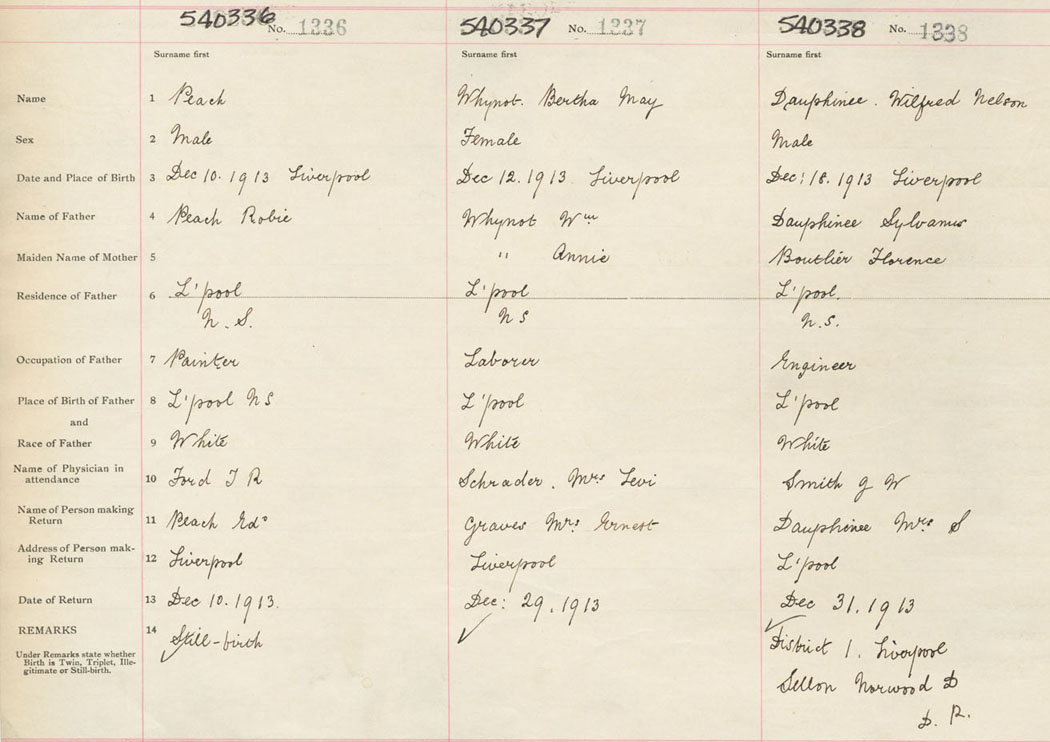 540336 No. 1336 540337 No. 1337 540338 No. 1338
Surname first Surname first Surname first
Name 1 Peach Whynot. Bertha May Dauphinee. Wilfred Nelson
Sex 2 Male Female Male
Date and Place of Birth 3 Dec 10. 1913 Liverpool Dec 12. 1913 Liverpool Dec: 18. 1913 Liverpool
Name of Father 4 Peach Robie Whynot Wm Dauphinee Sylvanus
Maiden Name of Mother 5 " Annie Boutlier Florence
Residence of Father 6 L'pool L'pool L'pool.
N. S. N S N. S.
Occupation of Father 7 Painter Laborer Engineer
Place of Birth of Father 8 L'pool N S L'pool L'pool
and
Race of Father 9 White White White
Name of Physician in
attendance 10 Ford T R Schrader. Mrs Levi Smith J W
Name of Person making
Return 11 Peach Edd Graves Mrs Ernest Dauphinee Mrs S
Address of Person mak-
ing Return 12 Liverpool Liverpool L'pool
Date of Return 13 Dec 10. 1913. Dec: 29. 1913 Dec 31. 1913
REMARKS 14 Still-birth District 1. Liverpool
Under Remarks state whether
Birth is Twin, Triplet, Ille-
gitimate or Still-birth.
Sellon Norwood D
D. R.